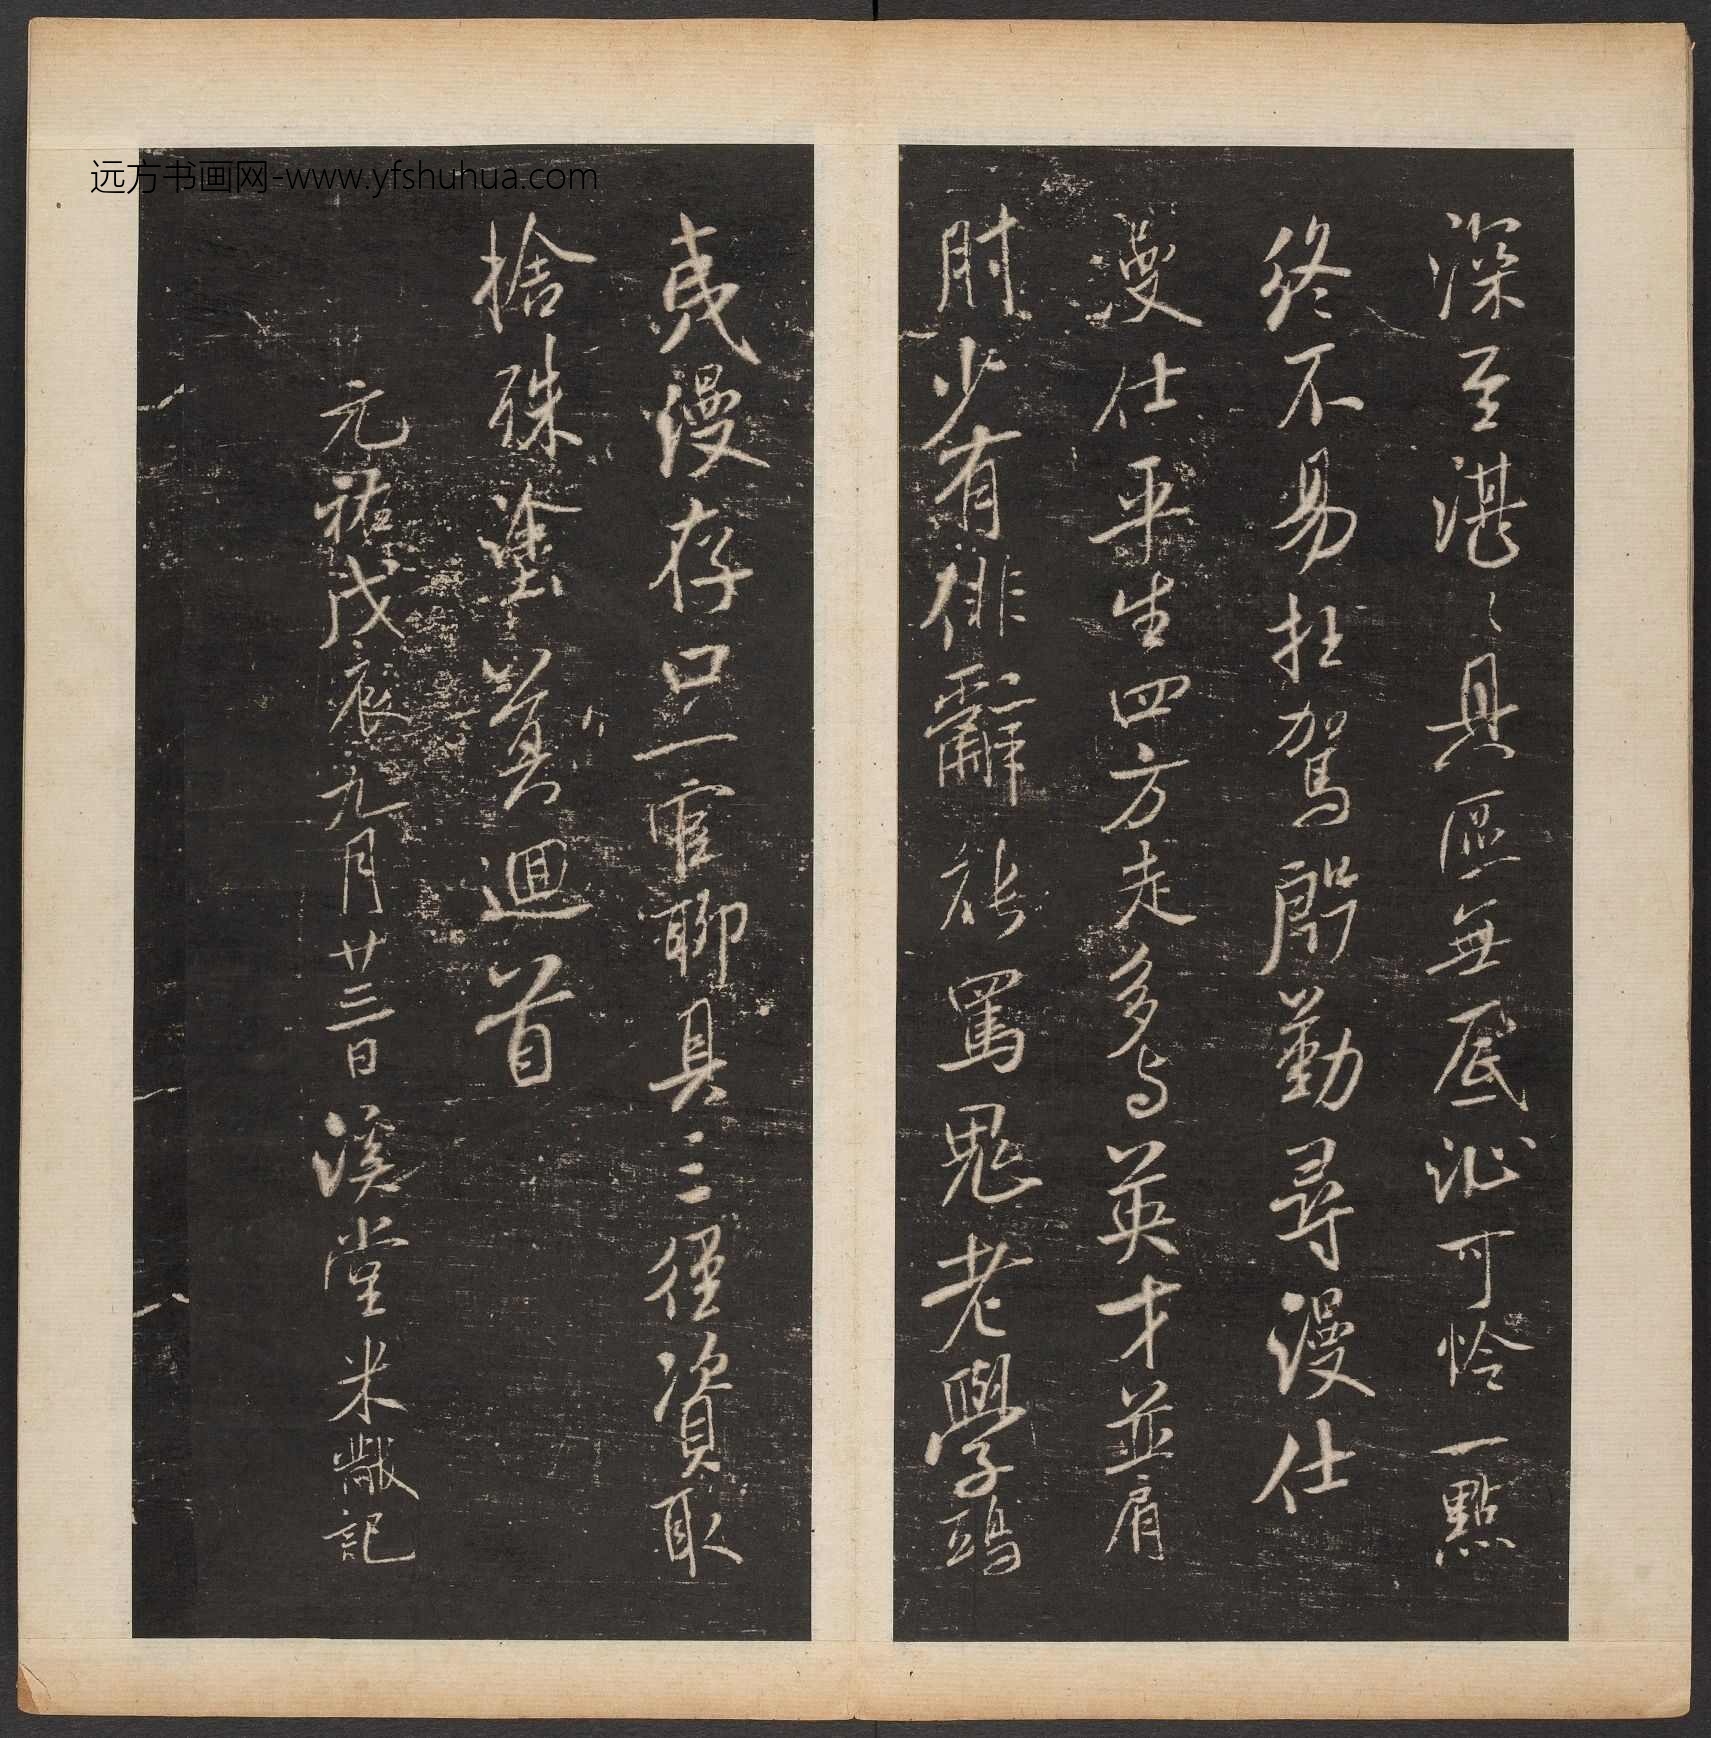 远方书画网-www.yfshuhua.com
深至湛〻具區無底沚可怜一點
終不易枉駕殷勤尋漫仕
漫仕平生四方走多与英才並肩
肘少有俳辭能罵鬼老學鴟
夷漫存口一官聊具三徑資取
捨殊塗莫迴首
元祐戊辰九月廿三日溪堂米黻記